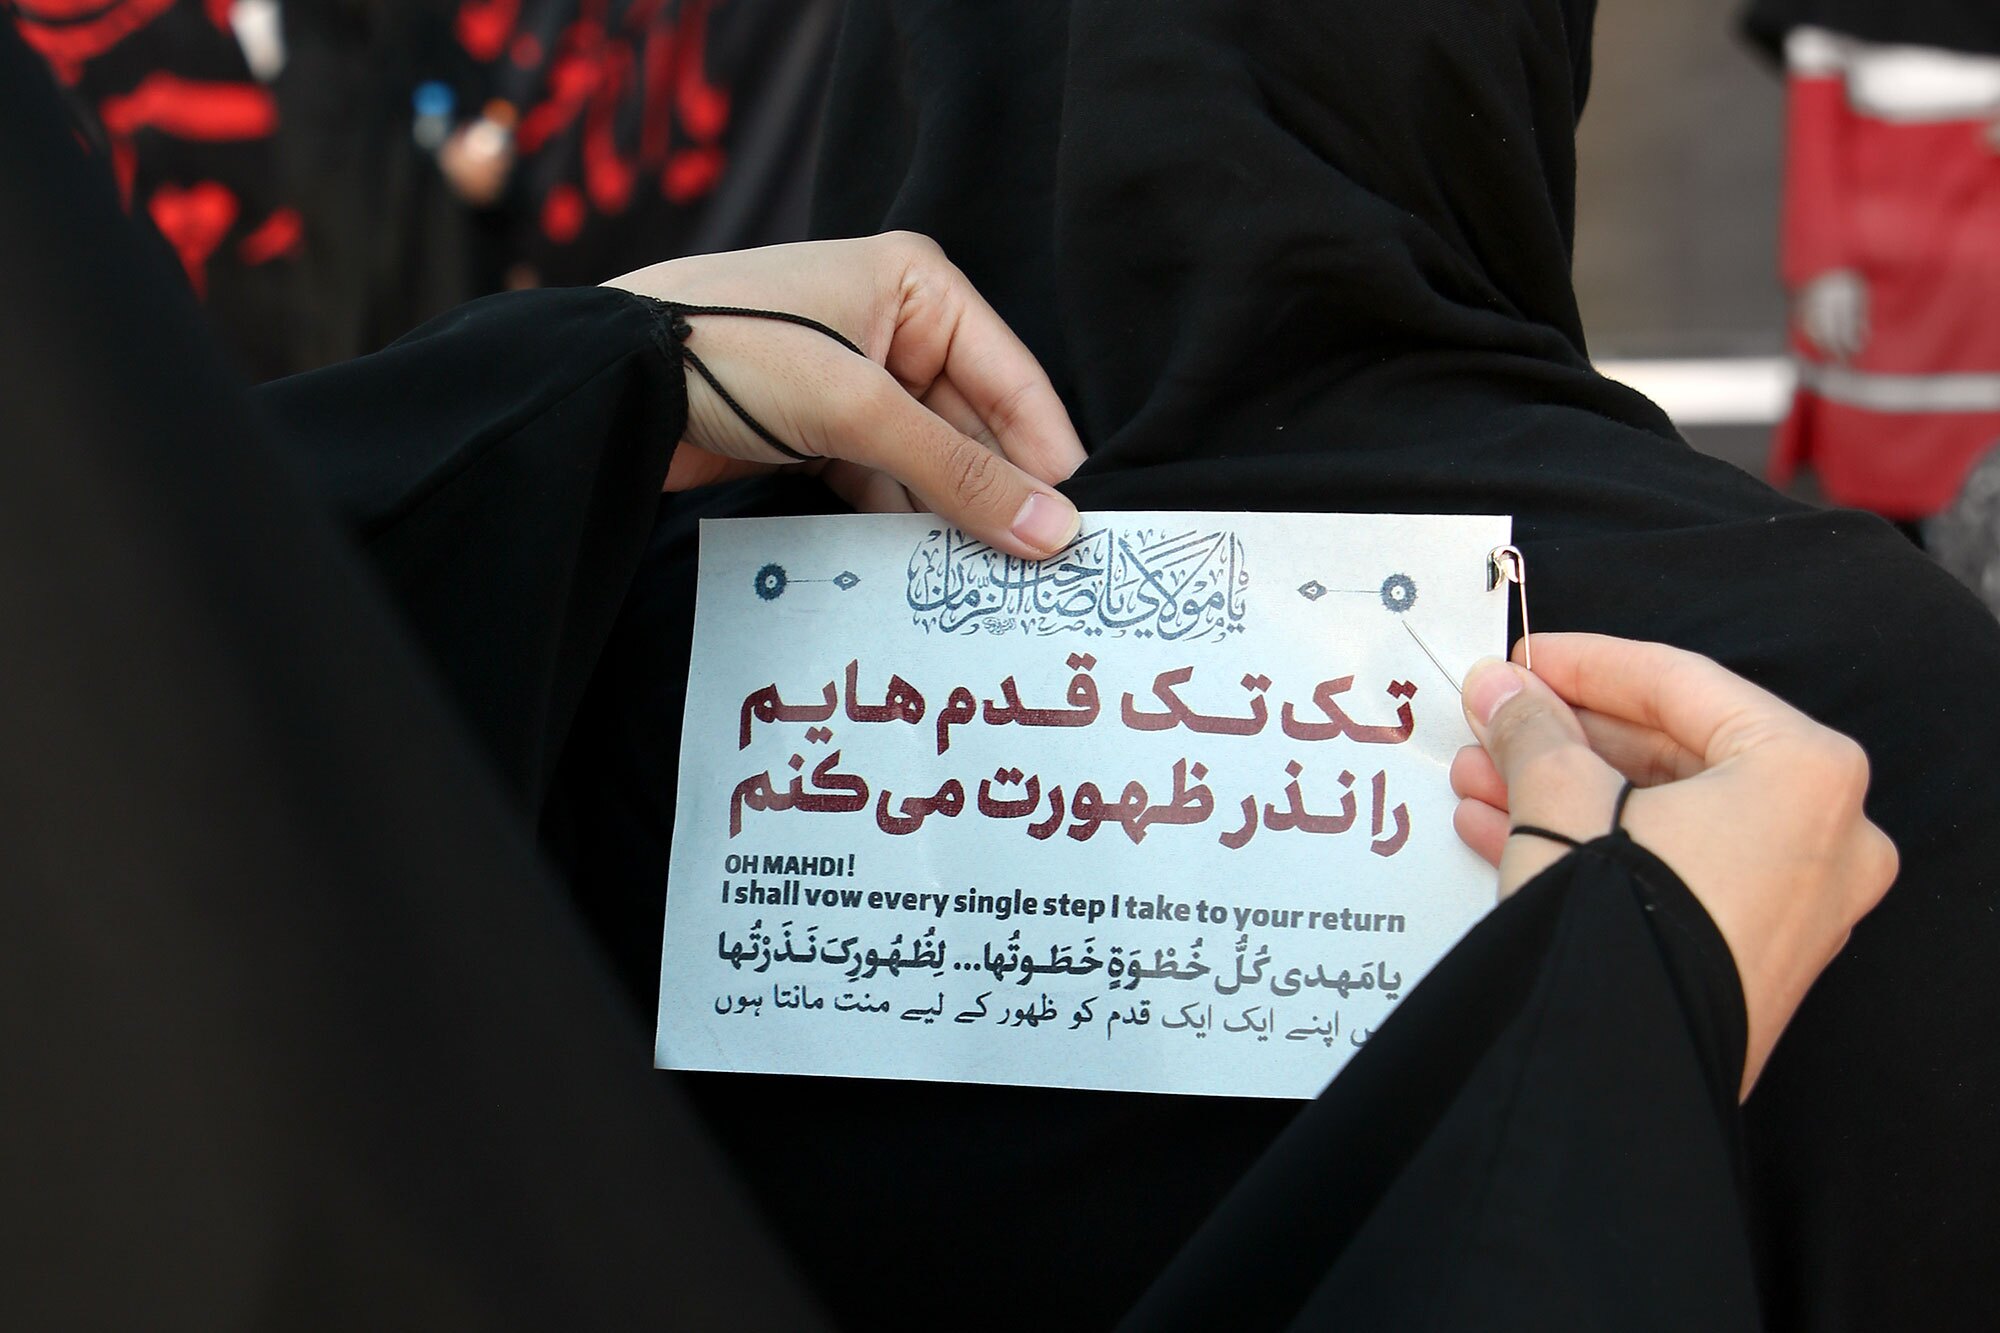 یا مولای یا صاحب الزمان
تک تک قدم هایم
را نذر ظهورت می کنم
OH MAHDI!
I shall vow every single step I take to your return
یا مَهدی کُلُّ خُطْوَةٍ خَطَوتُها... لِظُهُورِکَ نَذَرْتُها
اپنے ایک ایک قدم کو ظہور کے لیے منت مانتا ہوں